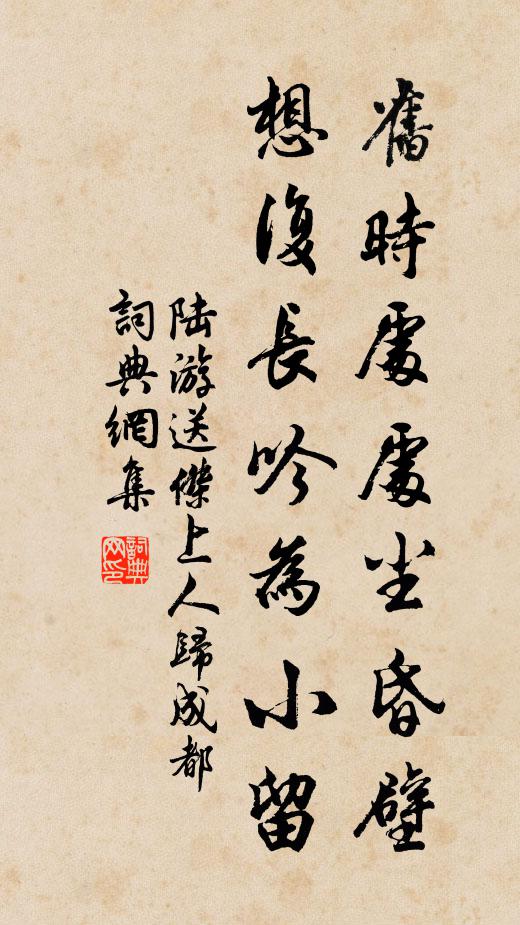 舊時處處尘昏壁
想復長吟為小留
陆游送傑上人歸成都
詞典網集
詞典网印